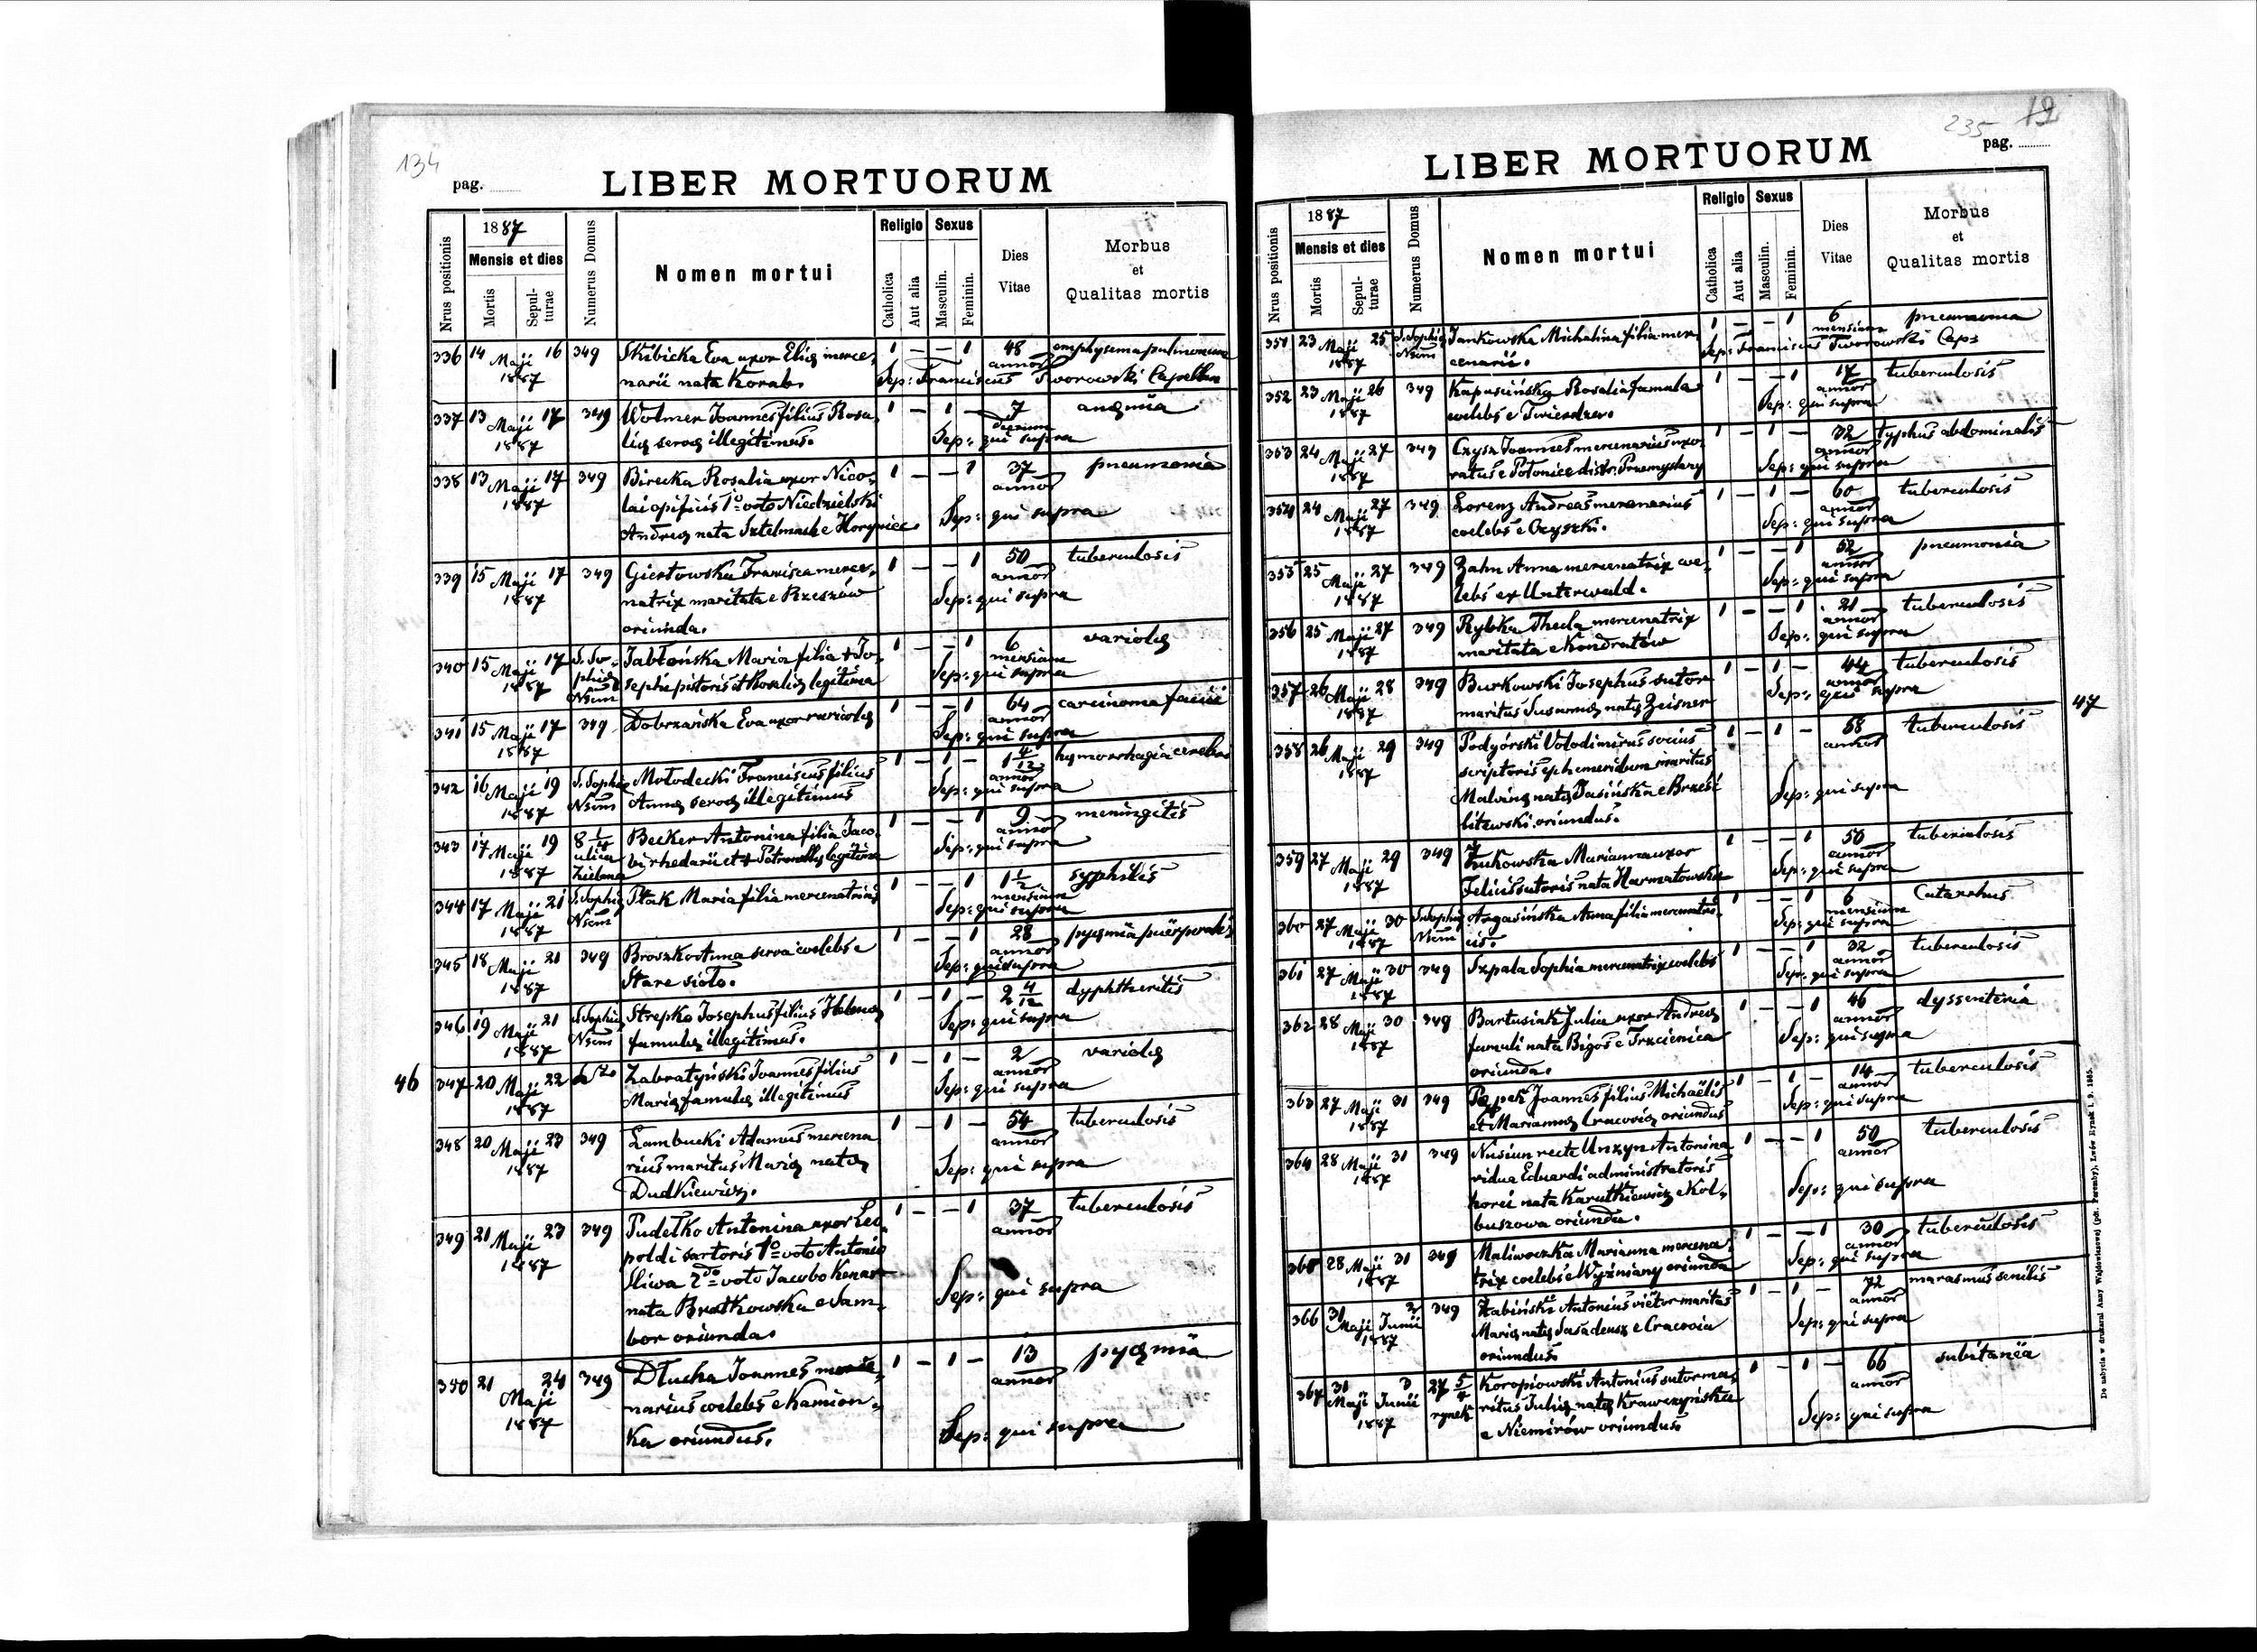 134
pag.
LIBER MORTUORUM
Nrus positionis
1887
Mensis et dies
Mortis
Sepul-
turae
Numerus Domus
Nomen mortui
Religio
Catholica
Aut alia
Sexus
Masculin.
Feminin.
Dies
Vitae
Morbus
et
Qualitas mortis
336 14 Maji 16 349 Skibicka Eva uxor Eliæ merce- 1 — — 1 48 emphysema pulmonum
1887 narii nata Korab. annor
Sep: Franciscus Tworowski Capellan
337 13 Maji 17 349 Wolmer Joannes filius Rosa- 1 — 1 — 7 anæmia
1887 liæ servæ illegitimus. Sep: qui supra
338 13 Maji 17 349 Birecka Rosalia uxor Nico- 1 — — 1 37 pneumonia
1887 lai opificis 1º voto Niedzielski annor
Andreæ nata Sztelmach e Horyniec Sep: qui supra
339 15 Maji 17 349 Giertowska Francisca merce- 1 — — 1 50 tuberculosis
1887 natrix maritata e Rzeszów annor
oriunda. Sep: qui supra
340 15 Maji 17 S. So- Jabłońska Maria filia + Jo- 1 — — 1 6 variolæ
1887 phiæ sephi pistoris et Rosaliæ legitima mensium
Nsem Sep: qui supra
341 15 Maji 17 349 Dobrzańska Eva uxor ruricolæ 1 — — 1 64 carcinoma faciei
1887 annor
Sep: qui supra
342 16 Maji 19 S. Sophiæ Mołodecki Franciscus filius 1 — 1 — 1 4/12 hæmorrhagia cerebri
1887 Nsem Annæ servæ illegitimus annor
Sep: qui supra
343 17 Maji 19 8 1/4 Becker Antonina filia Jaco- 1 — — 1 9 meningitis
1887 ulica bi rhedarii et + Petronellæ legitima annor
Zielona Sep: qui supra
344 17 Maji 21 S. Sophiæ Ptak Maria filia mercenatricis 1 — — 1 1 1/2 syphilis
1887 Nsem mensium
Sep: qui supra
345 18 Maji 21 349 Broszko Anna serva coelebs e 1 — — 1 28 pyæmia puerperalis
1887 Stare sioło. annor
Sep: qui supra
346 19 Maji 21 S. Sophiæ Strepko Josephus filius Helenæ 1 — 1 — 2 4/12 dyphtheritis
1887 Nsem famulæ illegitimus. Sep: qui supra
46
347 20 Maji 22 Zabratyński Joannes filius 1 — 1 — 2 variolæ
1887 Mariæ famulæ illegitimus annor
Sep: qui supra
348 20 Maji 23 349 Łambucki Adamus mercena 1 — 1 — 54 tuberculosis
1887 rius maritus Mariæ natæ annor
Dudkiewicz. Sep: qui supra
349 21 Maji 23 349 Pudełko Antonina uxor Leo- 1 — — 1 37 tuberculosis
1887 poldi sartoris 1º voto Antonio annor
Sliwa 2do voto Jacobo Kenar
nata Bratkowska e Sam- Sep: qui supra
bor oriunda.
350 21 Maji 24 349 Dłucha Joannes merce- 1 — 1 — 13 pyæmia
1887 narius coelebs e Kamion- annor
ka oriundus. Sep: qui supra
235 19
pag.
LIBER MORTUORUM
Nrus positionis
1887
Mensis et dies
Mortis
Sepul-
turae
Numerus Domus
Nomen mortui
Religio
Catholica
Aut alia
Sexus
Masculin.
Feminin.
Dies
Vitae
Morbus
et
Qualitas mortis
351 23 Maji 25 S. Sophiæ Jankowska Michalina filia mer- 1 — — 1 6 pneumonia
1887 Nsem cenarii. mensium
Sep: Franciscus Tworowski Cap:
352 23 Maji 26 349 Kapuścińska Rosalia famula 1 — — 1 17 tuberculosis
1887 coelebs e annor
Sep: qui supra
353 24 Maji 27 349 Czysz Joannes mercenarius uxo- 1 — 1 — 32 typhus abdominalis
1887 ratus e Połonice distr: Przemyślany annor
Sep: qui supra
354 24 Maji 27 349 Lorenz Andreas mercenarius 1 — 1 — 60 tuberculosis
1887 coelebs e Czyszki. annor
Sep: qui supra
355 25 Maji 27 349 Zahn Anna mercenatrix coe- 1 — — 1 52 pneumonia
1887 lebs ex Unterwald. annor
Sep: qui supra
356 25 Maji 27 349 Rybka Thecla mercenatrix 1 — — 1 21 tuberculosis
1887 maritata e Kondratów annor
Sep: qui supra
357 26 Maji 28 349 Burkowski Josephus sutor 1 — 1 — 44 tuberculosis
1887 maritus Susannæ natæ Zeisner annor
Sep: qui supra
47
358 26 Maji 29 349 Podgórski Volodimirus socius 1 — 1 — 68 tuberculosis
1887 scriptoris ephemeridum maritus annor
Malvinæ natæ Jasińska e Brześć
litewski oriundus. Sep: qui supra
359 27 Maji 29 349 Żukowska Marianna uxor 1 — — 1 50 tuberculosis
1887 Felicis sutoris nata Harmatowska annor
Sep: qui supra
360 27 Maji 30 S. Sophiæ Argasińska Anna filia mercenatri- 1 — — 1 6 Catarrhus
1887 Nsem cis. mensium
Sep: qui supra
361 27 Maji 30 349 Szpala Sophia mercenatrix coelebs 1 — — 1 32 tuberculosis
1887 annor
Sep: qui supra
362 28 Maji 30 349 Bartusiak Julia uxor Andreæ 1 — — 1 46 dyssenteria
1887 famuli nata Bigos e Trzcienica annor
oriunda. Sep: qui supra
363 27 Maji 31 349 Joannes filius Michaëlis 1 — 1 — 14 tuberculosis
1887 et Mariannæ Cracoviæ oriundus annor
Sep: qui supra
364 28 Maji 31 349 recte Antonina 1 — — 1 50 tuberculosis
1887 vidua Eduardi administratoris annor
horei nata Karutkiewicz e Kol-
buszowa oriunda. Sep: qui supra
365 28 Maji 31 349 Maliwoczka Marianna mercena- 1 — — 1 30 tuberculosis
1887 trix coelebs e Wyżniany oriunda annor
Sep: qui supra
366 31 Maji 2 Junii 349 Żabiński Antonius vietor maritus 1 — 1 — 72 marasmus senilis
1887 Mariæ natæ e Cracovia annor
oriundus. Sep: qui supra
367 31 Maji 3 Junii 27 5/4 Koropiowski Antonius sutor ma- 1 — 1 — 66 subitanëa
1887 rynek ritus Juliæ natæ Krawczyńska annor
e Niemirów oriundus Sep: qui supra
De nabycia w drukarni Anny Wajdowiczowej (pdr. Paremby), Lwów Rynek l. 9. 1885.